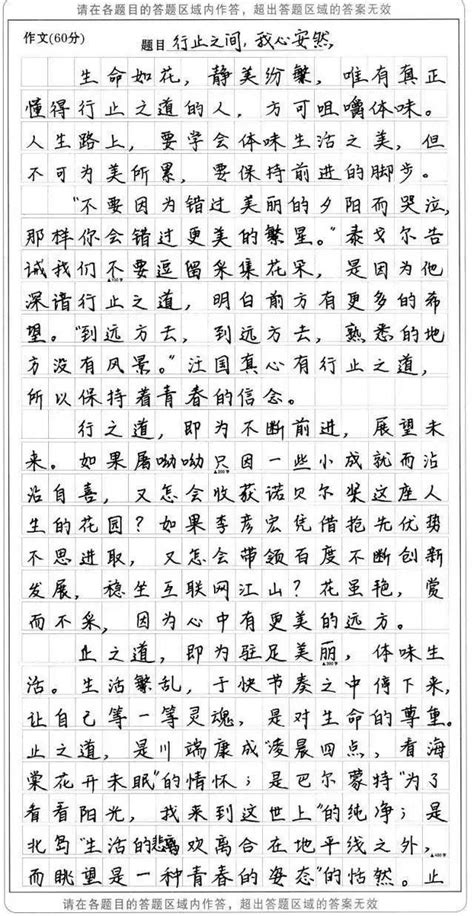 请在各题目的答题区域内作答，超出答题区域的答案无效
作文(60分)
题目 行止之间，我心安然，
生命如花，静美纷繁，唯有真正
懂得行止之道的人，方可咀嚼体味。
人生路上，要学会体味生活之美，但
不可为美所累，要保持前进的脚步。
"不要因为错过美丽的夕阳而哭泣，
那样你会错过更美的繁星。"泰戈尔告
诫我们不要逗留采集花朵，是因为他
深谙行止之道，明白前方有更多的希
望。"到远方去，到远方去，熟悉的地
方没有风景。"汪国真心有行止之道，
所以保持着青春的信念。
行之道，即为不断前进，展望未
来。如果屠呦呦只因一些小成就而沾
沾自喜，又怎会收获诺贝尔奖这座人
生的花园？如果李彦宏凭借抢先优势
不思进取，又怎会带领百度不断创新
发展，稳坐互联网江山？花虽艳，赏
而不采，因为心中有更美的远方。
止之道，即为驻足美丽，体味生
活。生活繁乱，于快节奏之中停下来，
让自己等一等灵魂，是对生命的尊重。
止之道，是川端康成"凌晨四点，看海
棠花开未眠"的情怀；是巴尔蒙特"为了
看看阳光，我来到这世上"的纯净；是
北岛"生活的悲离欢离合在地平线之外，
而眺望是一种青春的姿态"的恬然。止
请在各题目的答题区域内作答，超出答题区域的答案无效